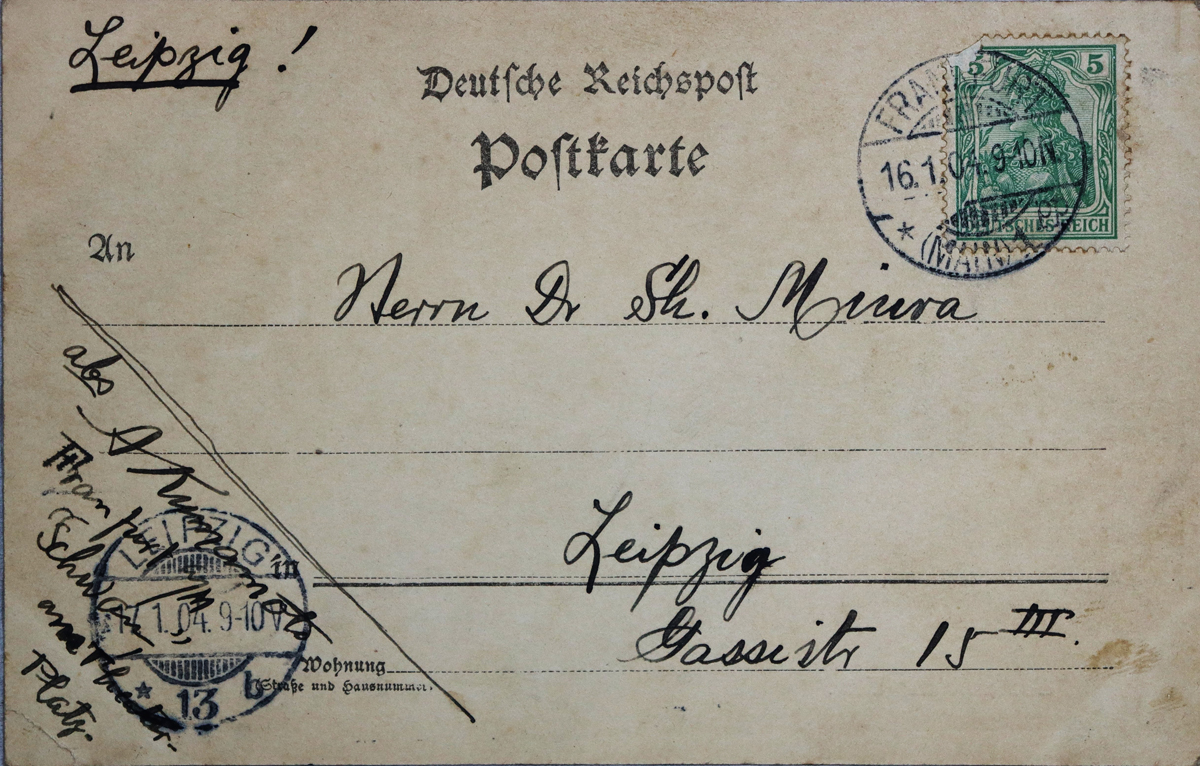 Leipzig!
Deutsche Reichspost
Postkarte
5 5
FRANKFURT
16.1.04. 9-10 N.
* (MAIN) 1
DEUTSCHES REICH
An
Herrn Dr Sh. Miura
abs
Frankfurt a/M
am
Platz.
LEIPZIG
17.1.04. 9-10 V.
* 13 b
in Leipzig
Wohnung
(Straße und Hausnummer)
15 III.